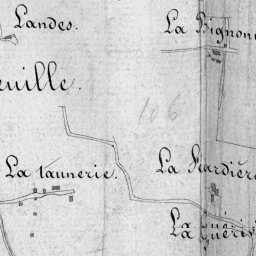 Landes.
La Bignonn
euille.
106
La taunerie.
La Hardière
La Guéris